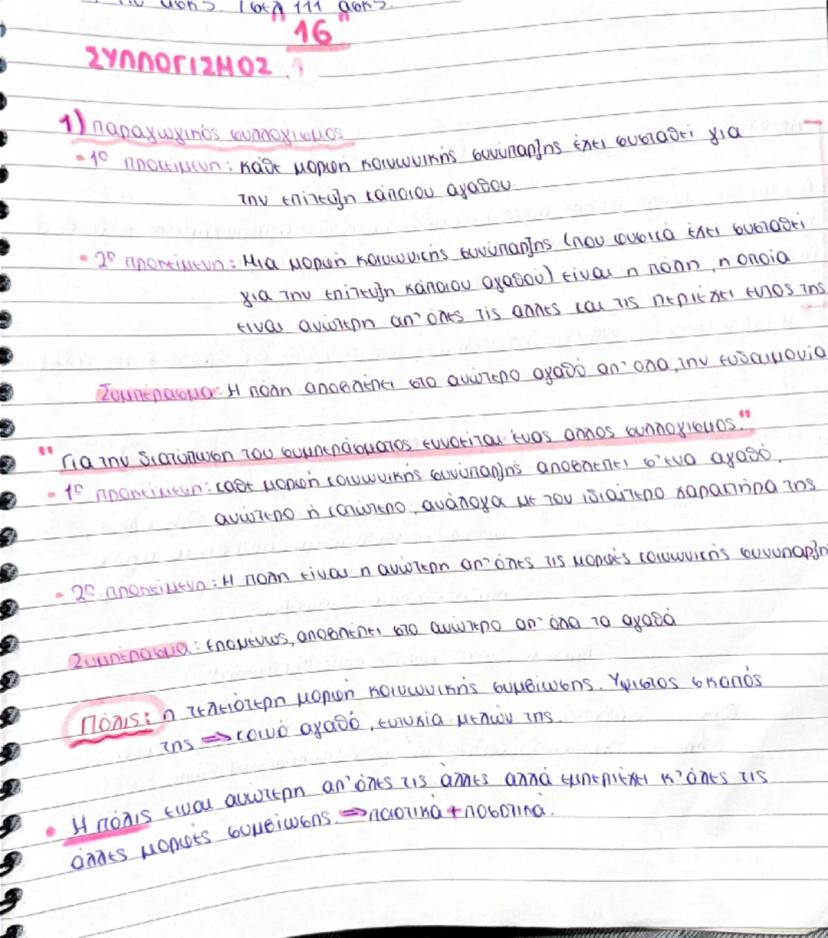 "16"
ΣΥΛΛΟΓΙΣΜΟΣ
1) Παραγωγικός συλλογισμος
• 1ο προκείμενη: κάθε μορφή κοινωνικής συνύπαρξης έχει συσταθεί για
την επίτευξη κάποιου αγαθου.
• 2ο προκείμενη: Μια μορφή κοινωνικής συνύπαρξης (που φυσικά έχει συσταθεί
για την επίτευξη κάποιου αγαθού) είναι η πόλη, η οποία
ειναι ανώτερη απ' όλες τις αλλες και τις περιέχει εντος της
Συμπέρασμα: Η πόλη αποβλέπει στο ανώτερο αγαθό απ' ολα, την ευδαιμονία
"Για την διατύπωση του συμπεράσματος εννοείται ένας αλλος συλλογισμος."
• 1ο προκείμενη: καθε μορφή κοινωνικής συνύπαρξης αποβλεπει σ'ενα αγαθό,
ανώτερο ή κατώτερο, ανάλογα με τον ιδιαίτερο χαρακτήρα της
• 2ο προκείμενη: Η πόλη είναι η ανώτερη απ' όλες τις μορφές κοινωνικής συνυπαρξη
Συμπέρασμα: Επομένως, αποβλέπει στο ανώτερο απ' όλα τα αγαθά
Πόλις: η τελειότερη μορφή κοινωνικής συμβίωσης. Υψιστος σκοπός
της ⇒ κοινό αγαθό, ευτυχία μελών της.
• Η πόλις ειναι ανώτερη απ' όλες τις άλλες αλλά εμπεριέχει κ' όλες τις
άλλες μορφές συμβίωσης. ⇒ ποιοτικά + ποσοτικά.